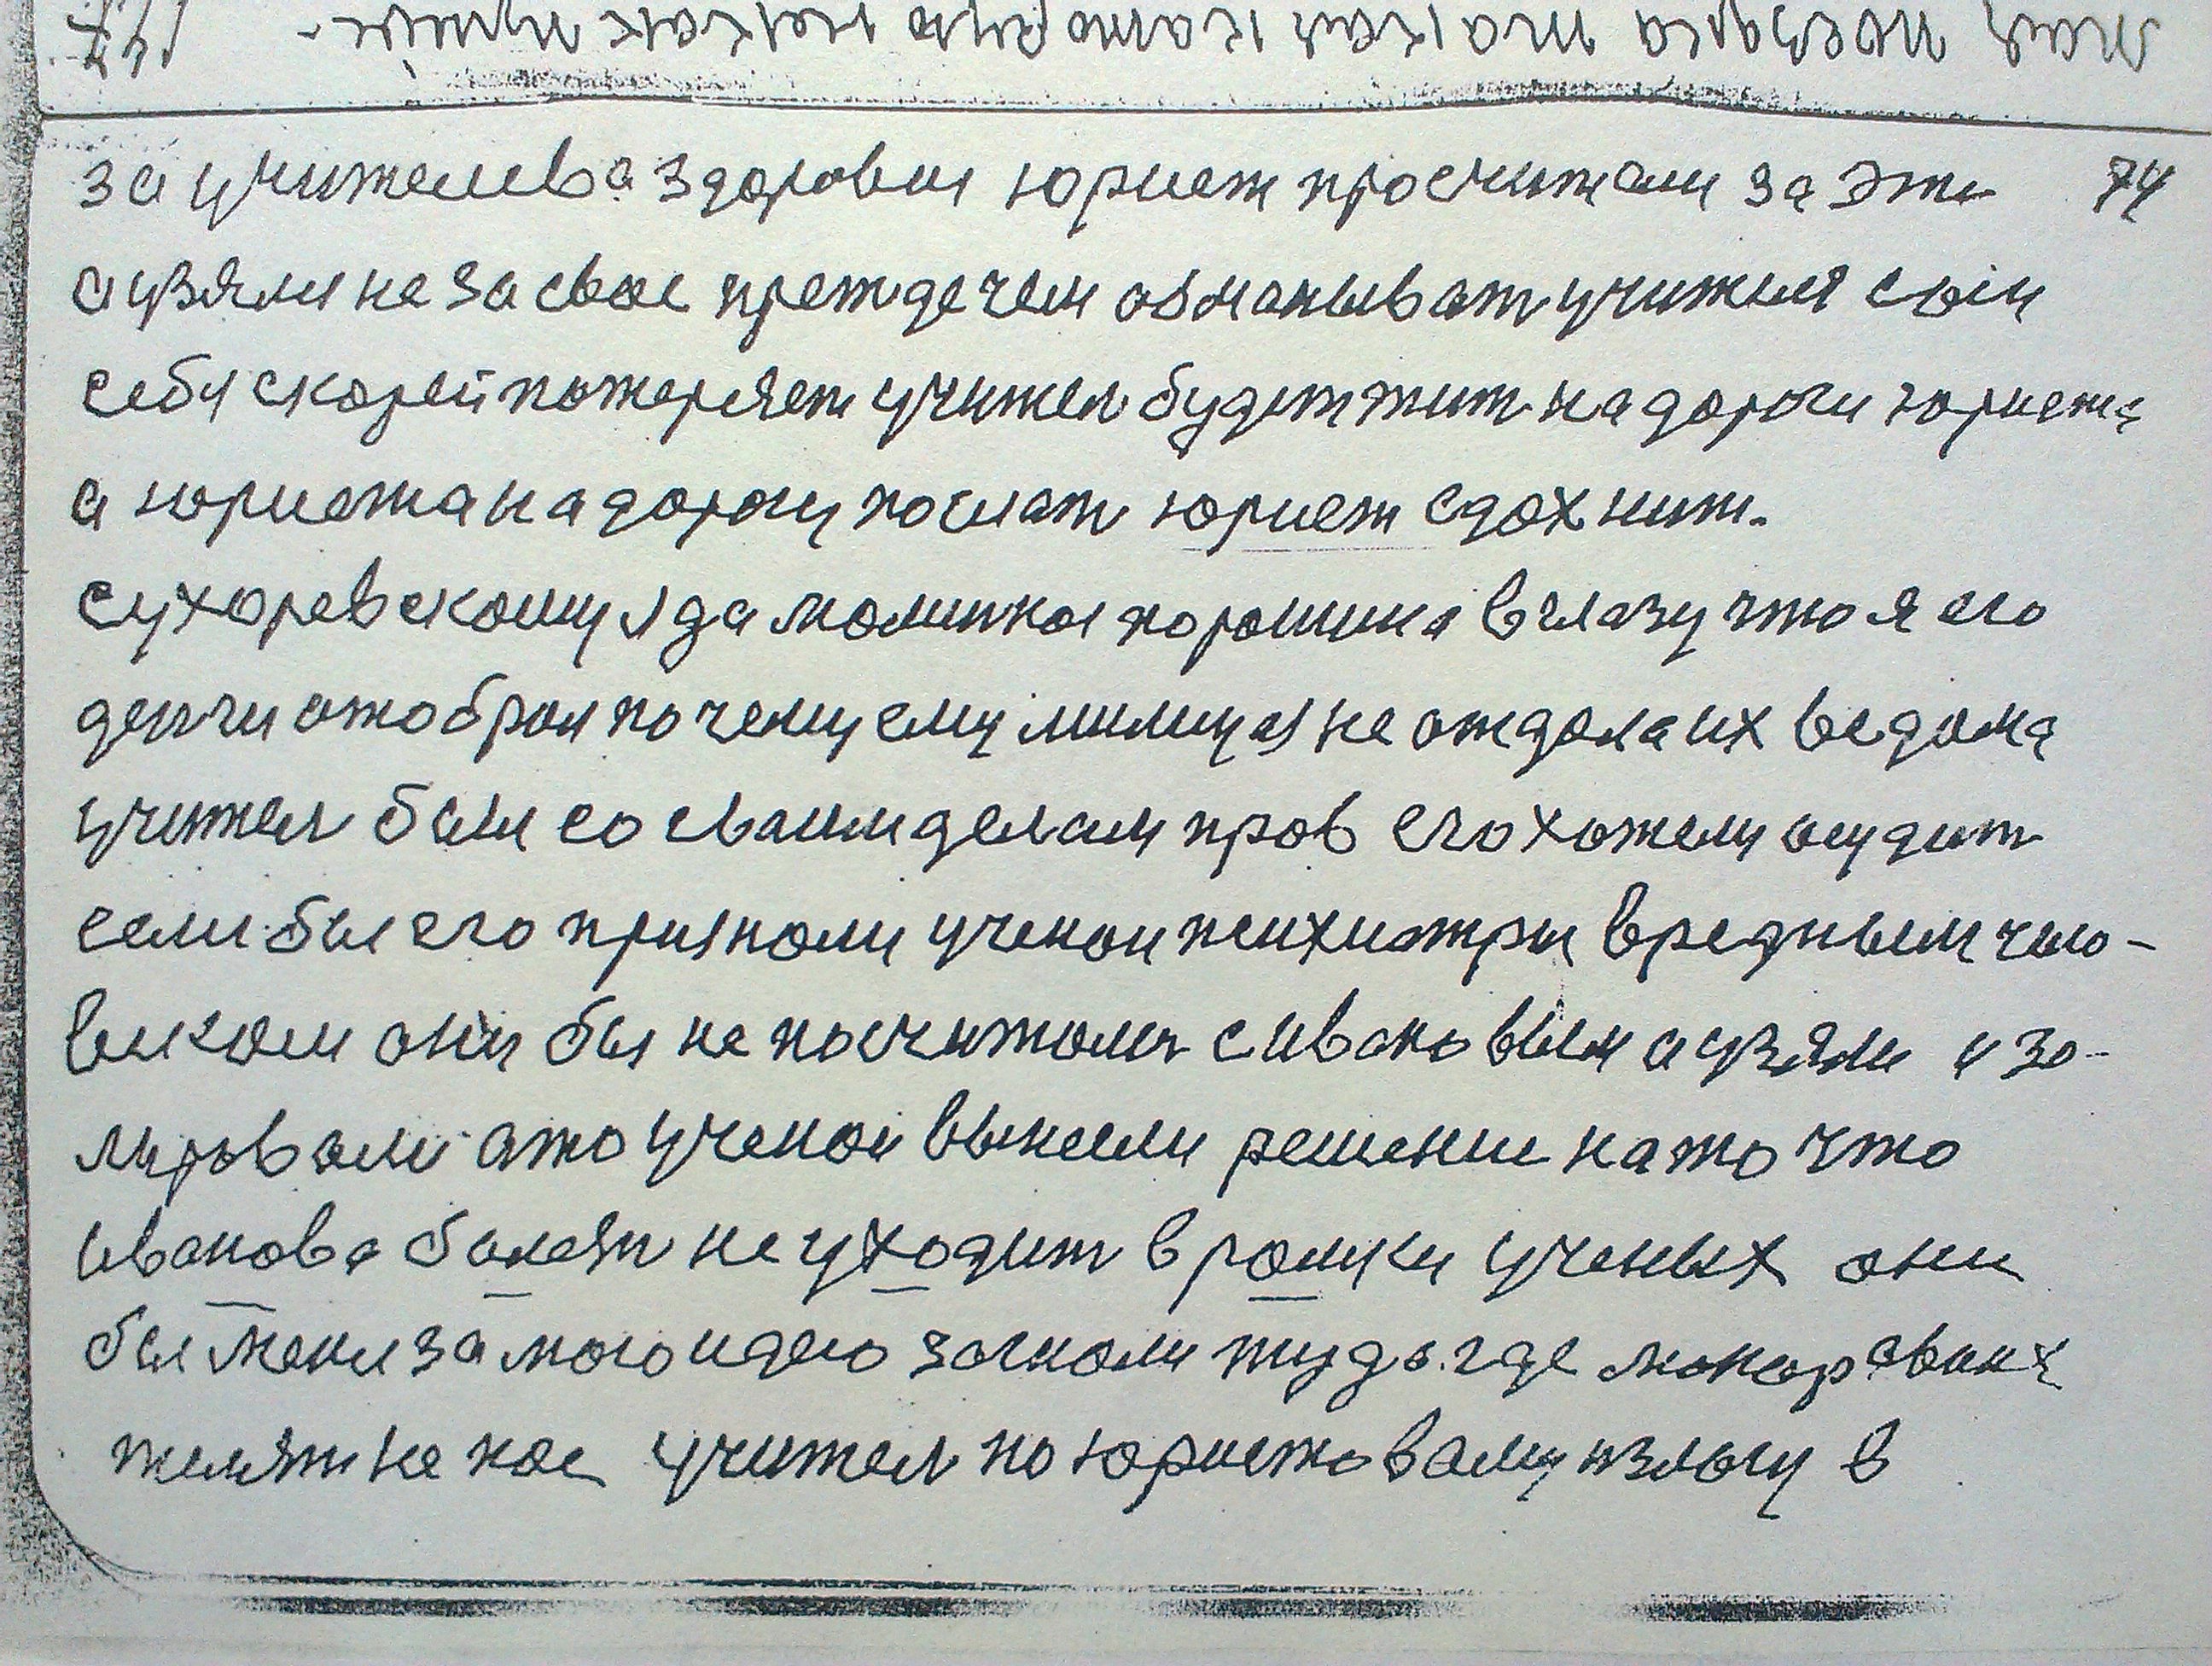 за учителева здоровия юрист просчитали за эти 74
а узяли не за свое преждечем обманыват учитиля сын
себя скорей потеряет учител будет жит на дороги юриста
а юриста на дорогу послат юрист сдохнит.
сухоревскому я да молинкоя порошина в глазу что я его
денги отобрал по чему ему милицая не отдала их ведома
учител был со сваим делам прав его хотели осудит
если бы его признали ученои психиатры вредным чило-
виком они бы не посчитолис с ивановым а узяли изо-
лировали ато ученои вынесли решение на то что
иванова балезн не уходит в рамки ученых они
бы меня за мою идею загнали туда где макар сваих
телят не пас учител по юристовому излогу в